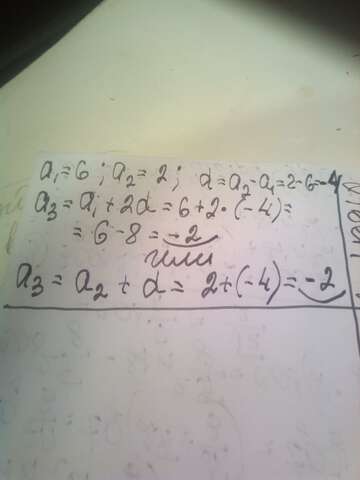 a₁=6; a₂=2; d=a₂-a₁=2-6=-4
a₃=a₁+2d=6+2·(-4)=
=6-8=-2
или
a₃=a₂+d=2+(-4)=-2